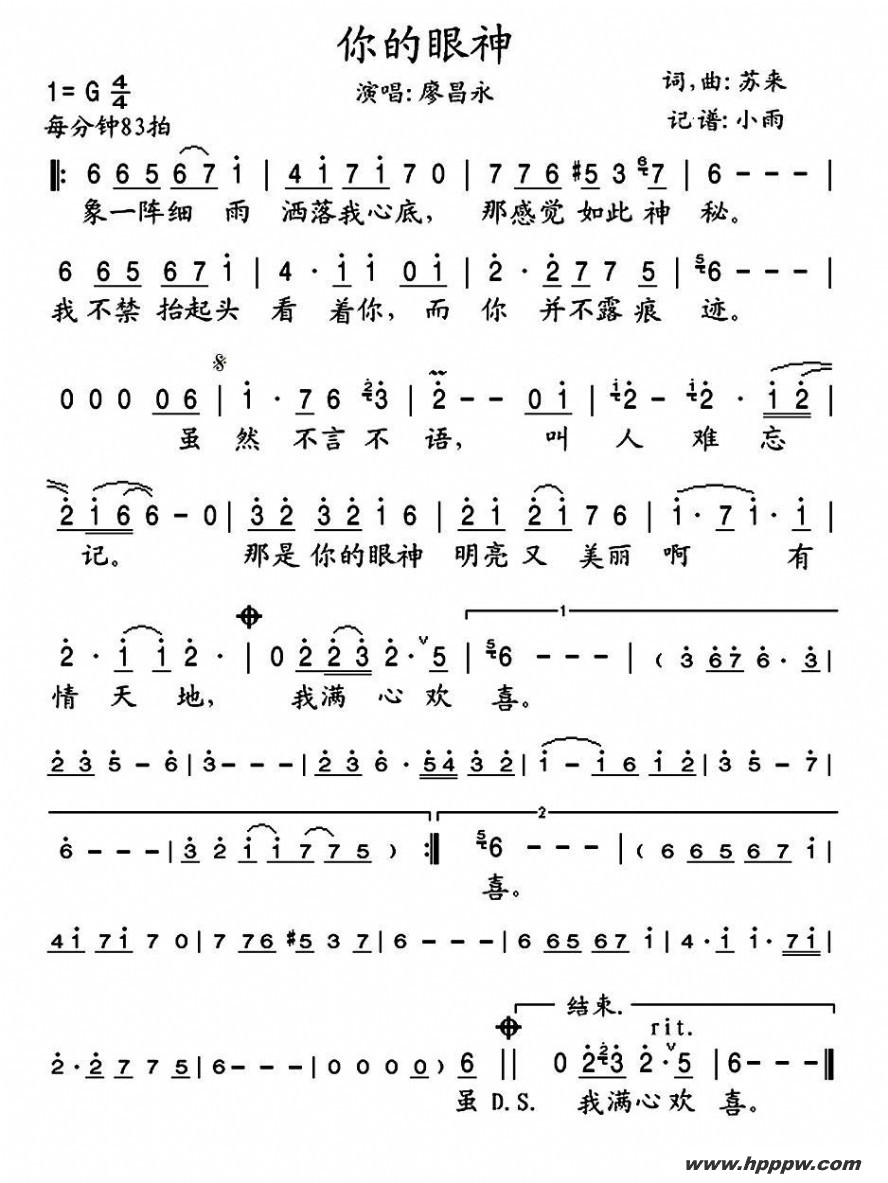 你的眼神
1= G 4/4
演唱: 廖昌永
词,曲: 苏来
每分钟83拍
记谱: 小雨
‖: 6 65 67 i | 4i 7i 7 0 | 77 6 #5 3 67 | 6 - - - |
象一阵细 雨 洒落我心底, 那感觉 如此神 秘。
6 65 67 i | 4 · i i 0 i | 2 · 2 7 7 5 | 56 - - - |
我 不禁 抬起头 看 着你, 而 你 并不露痕 迹。
𝄋
0 0 0 0 6 | i · 7 6 i23 | 2 - - 0 i | i2 - i2 · i 2 |
虽 然 不言不 语, 叫 人 难 忘
2 i 6 6 - 0 | 3 2 3 2 i 6 | 2 i 2 i 7 6 | i · 7 i · i |
记。 那是 你的眼神 明亮 又 美丽 啊 有
1
2 · i i 2 · | 0 2 2 3 2 · v 5 | 56 - - - | ( 3 67 6 · 3 |
情 天 地, 我满 心 欢 喜。
2 3 5 - 6 | 3 - - - | 2 3 6 · 54 3 2 | i - i 6 i 2 | 3 5 - 7 |
2
6 - - - | 3 2 i i 7 7 5 ) :‖ 56 - - - | ( 6 65 67 i |
喜。
4i 7i 7 0 | 7 76 #5 3 7 | 6 - - - | 6 65 67 i | 4 · i i · 7i |
结束.
rit.
2 · 2 7 7 5 | 6 - - - | 0 0 0 0 ) 6 || 0 2 23 2 · v 5 | 6 - - - ‖
虽 D.S. 我满心欢 喜。
www.hpppw.com